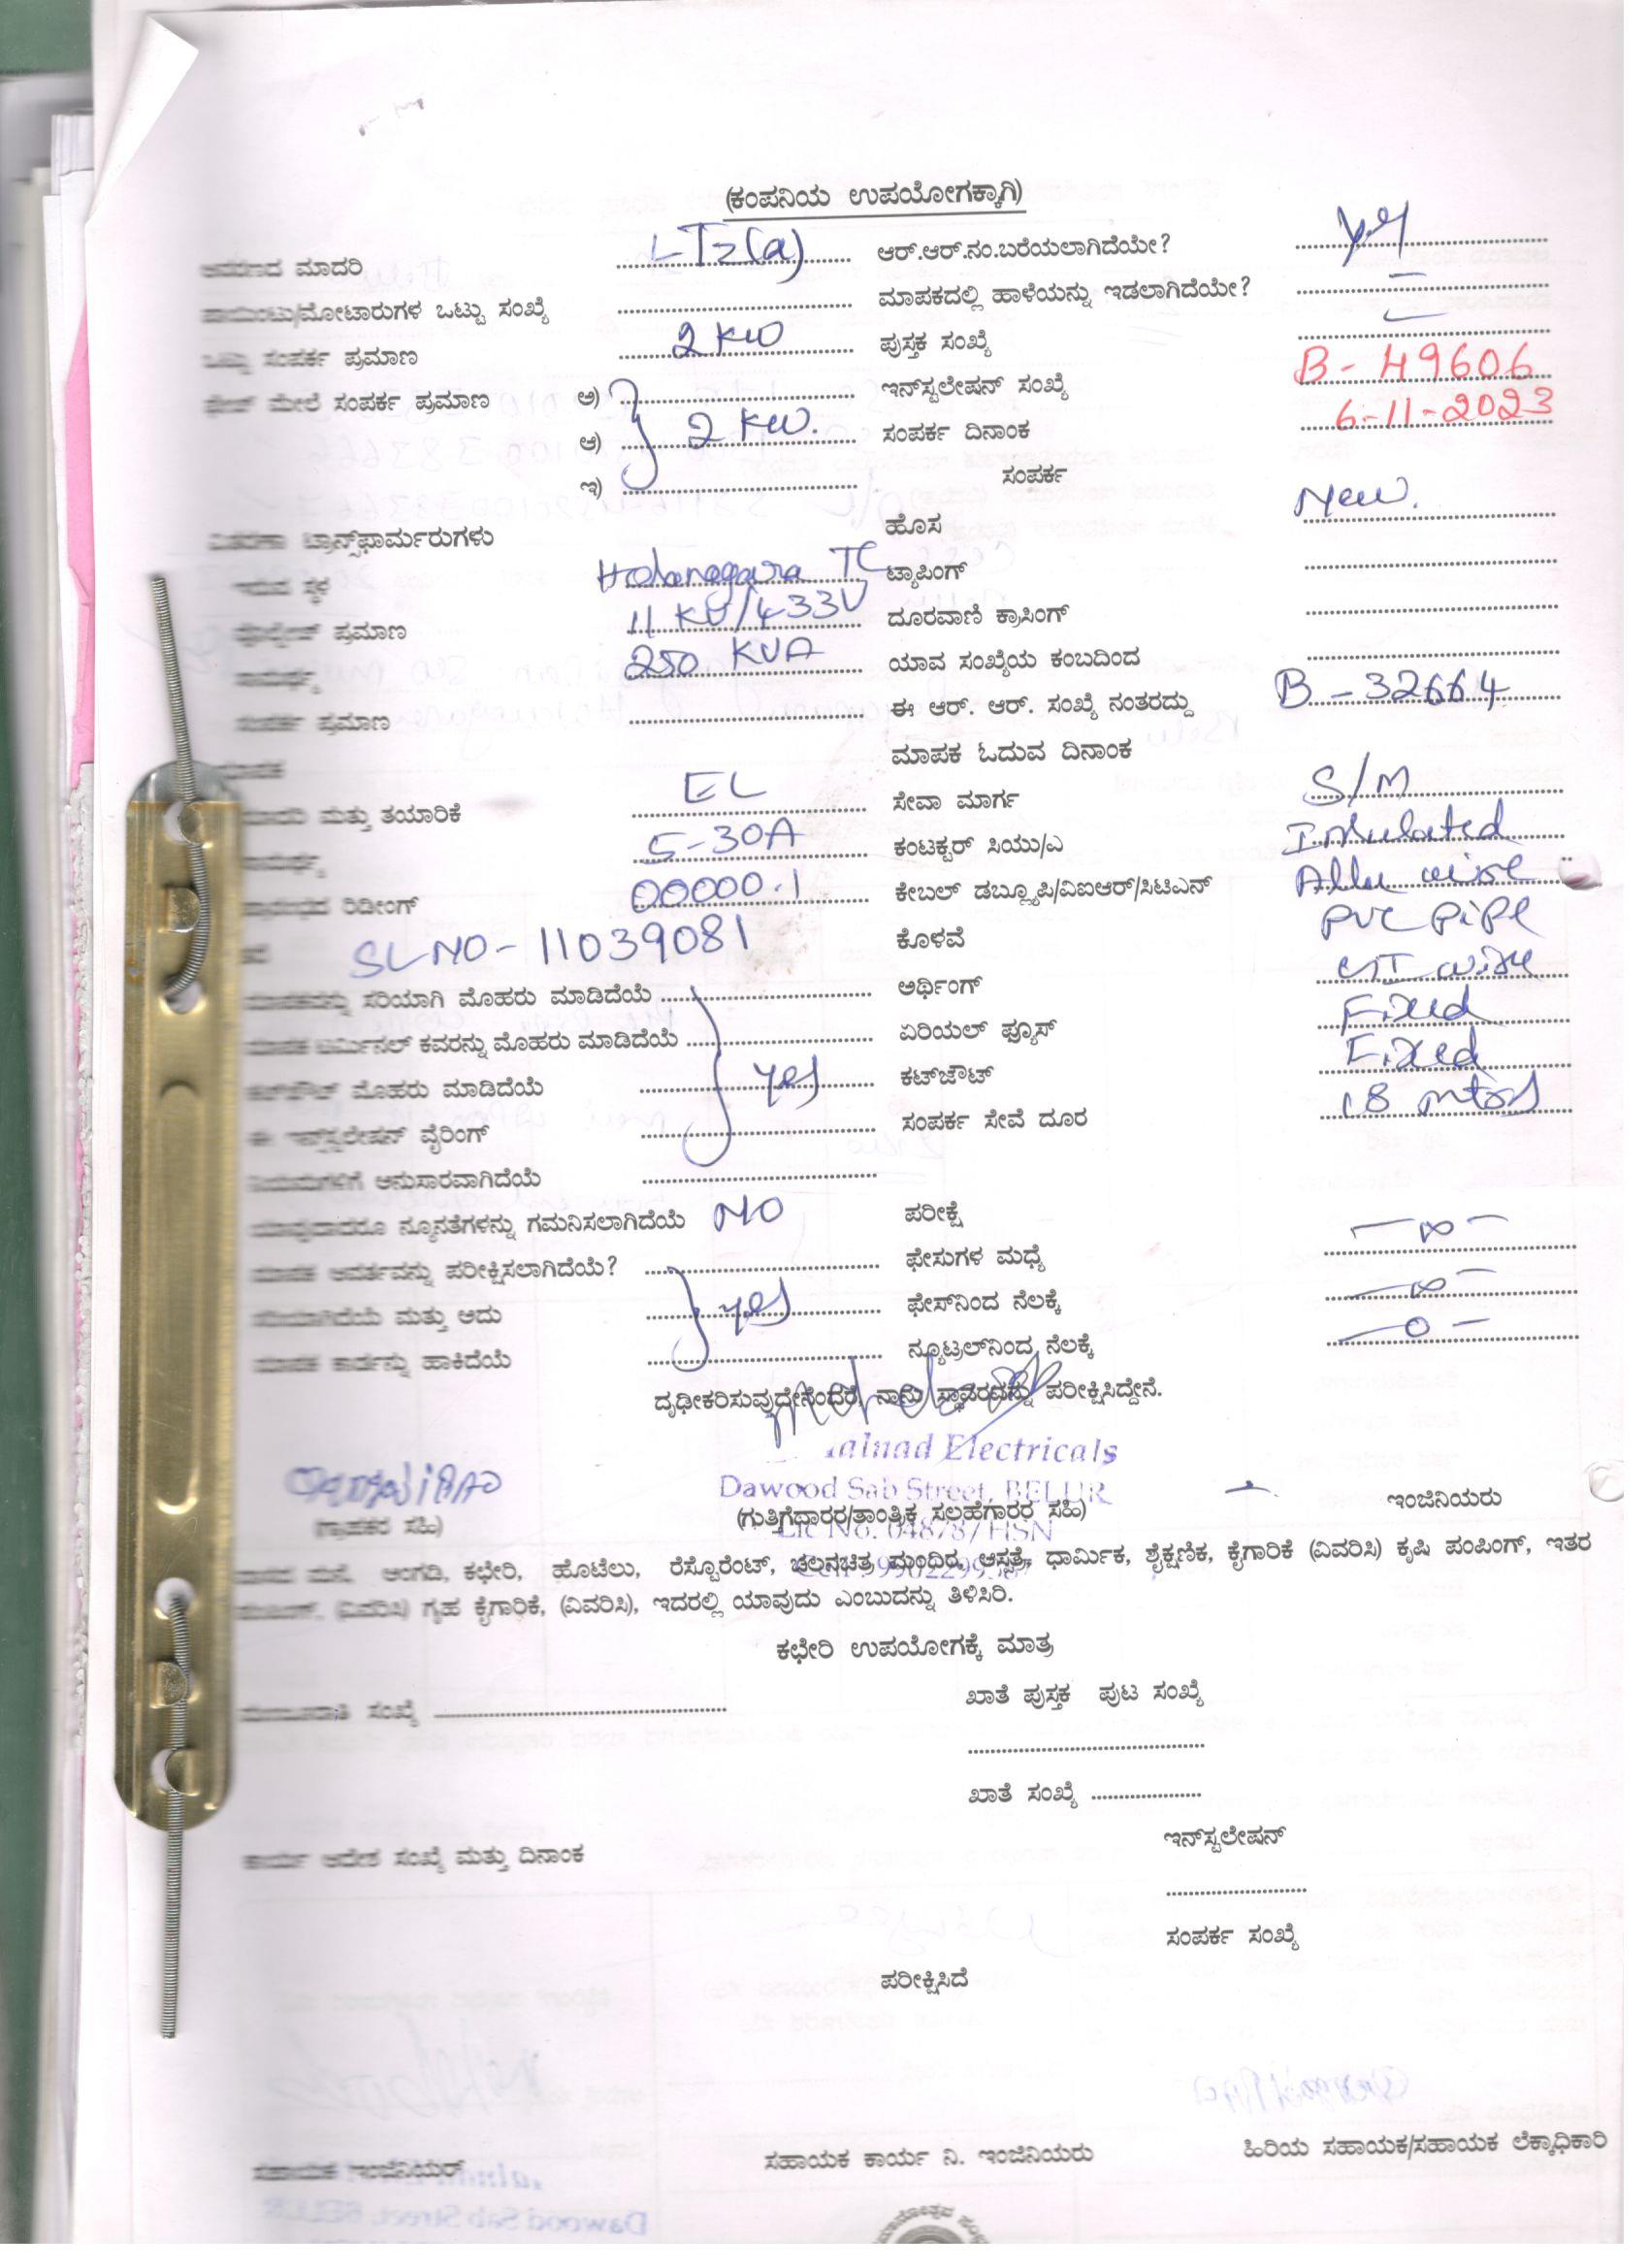 (ಕಂಪನಿಯ ಉಪಯೋಗಕ್ಕಾಗಿ)
ಮಾದರಿ LT2(a) ಆರ್.ಆರ್.ನಂ.ಬರೆಯಲಾಗಿದೆಯೇ? yes
ಪಾಯಿಂಟು/ಮೋಟಾರುಗಳ ಒಟ್ಟು ಸಂಖ್ಯೆ ಮಾಪಕದಲ್ಲಿ ಹಾಳೆಯನ್ನು ಇಡಲಾಗಿದೆಯೇ? –
ಒಟ್ಟು ಸಂಪರ್ಕ ಪ್ರಮಾಣ 2 KW ಪುಸ್ತಕ ಸಂಖ್ಯೆ –
ಫೇಜ್ ಮೇಲೆ ಸಂಪರ್ಕ ಪ್ರಮಾಣ ಅ) ಇನ್‌ಸ್ಟಲೇಷನ್ ಸಂಖ್ಯೆ B-49606
ಆ) 2 KW. ಸಂಪರ್ಕ ದಿನಾಂಕ 6-11-2023
ಇ) ಸಂಪರ್ಕ
ವಿತರಣಾ ಟ್ರಾನ್ಸ್‌ಫಾರ್ಮರುಗಳು ಹೊಸ New.
ಇರುವ ಸ್ಥಳ TC ಟ್ಯಾಪಿಂಗ್
ವೋಲ್ಟೇಜ್ ಪ್ರಮಾಣ 11 KV/433V ದೂರವಾಣಿ ಕ್ರಾಸಿಂಗ್
ಸಾಮರ್ಥ್ಯ 250 KVA ಯಾವ ಸಂಖ್ಯೆಯ ಕಂಬದಿಂದ
ಸಂಪರ್ಕ ಪ್ರಮಾಣ ಈ ಆರ್. ಆರ್. ಸಂಖ್ಯೆ ನಂತರದ್ದು B-32664
ಮಾಪಕ ಮಾಪಕ ಓದುವ ದಿನಾಂಕ
ಮಾದರಿ ಮತ್ತು ತಯಾರಿಕೆ EL ಸೇವಾ ಮಾರ್ಗ S/M
ಸಾಮರ್ಥ್ಯ 5-30A ಕಂಟಕ್ಟರ್ ಸಿಯು/ಎ Insulated
ಪ್ರಾರಂಭದ ರಿಡೀಂಗ್ 00000.1 ಕೇಬಲ್ ಡಬ್ಲ್ಯೂಪಿ/ವಿಐಆರ್/ಸಿಟಿಎನ್ Allu wire
SL NO-11039081 ಕೊಳವೆ PVC Pipe
ಮಾಪಕವನ್ನು ಸರಿಯಾಗಿ ಮೊಹರು ಮಾಡಿದೆಯೆ ಅರ್ಥಿಂಗ್ GI wire
ಮಾಪಕ ಟರ್ಮಿನಲ್ ಕವರನ್ನು ಮೊಹರು ಮಾಡಿದೆಯೆ ಏರಿಯಲ್ ಫ್ಯೂಸ್ Fixed
ಕಟ್‌ಔಟ್ ಮೊಹರು ಮಾಡಿದೆಯೆ yes ಕಟ್‌ಜೌಟ್ Fixed
ಈ ಇನ್‌ಸ್ಟಲೇಷನ್ ವೈರಿಂಗ್ ಸಂಪರ್ಕ ಸೇವೆ ದೂರ 18 mtrs
ನಿಯಮಗಳಿಗೆ ಅನುಸಾರವಾಗಿದೆಯೆ
ಯಾವುದಾದರೂ ನ್ಯೂನತೆಗಳನ್ನು ಗಮನಿಸಲಾಗಿದೆಯೆ NO ಪರೀಕ್ಷೆ
ಮಾಪಕ ಆವರ್ತವನ್ನು ಪರೀಕ್ಷಿಸಲಾಗಿದೆಯೆ? ಫೇಸುಗಳ ಮಧ್ಯೆ –∞–
ಸರಿಯಾಗಿದೆಯೆ ಮತ್ತು ಅದು yes ಫೇಸ್‌ನಿಂದ ನೆಲಕ್ಕೆ –∞–
ಮಾಪಕ ಕಾರ್ಡನ್ನು ಹಾಕಿದೆಯೆ ನ್ಯೂಟ್ರಲ್‌ನಿಂದ ನೆಲಕ್ಕೆ –0–
ದೃಢೀಕರಿಸುವುದೇನೆಂದರೆ, ನಾನು ಸ್ಥಾವರವನ್ನು ಪರೀಕ್ಷಿಸಿದ್ದೇನೆ.
alnad Electricals
Dawood Sab Street, BELUR
ಇಂಜಿನಿಯರು
(ಗ್ರಾಹಕರ ಸಹಿ) (ಗುತ್ತಿಗೆದಾರರ/ತಾಂತ್ರಿಕ ಸಲಹೆಗಾರರ ಸಹಿ)
Lic No. 04878/HSN
ವಾಸದ ಮನೆ, ಅಂಗಡಿ, ಕಛೇರಿ, ಹೊಟೆಲು, ರೆಸ್ಟೊರೆಂಟ್, ಚಲನಚಿತ್ರ ಮಂದಿರ, ಆಸ್ಪತ್ರೆ, ಧಾರ್ಮಿಕ, ಶೈಕ್ಷಣಿಕ, ಕೈಗಾರಿಕೆ (ವಿವರಿಸಿ) ಕೃಷಿ ಪಂಪಿಂಗ್, ಇತರ
ಪಂಪಿಂಗ್, (ವಿವರಿಸಿ) ಗೃಹ ಕೈಗಾರಿಕೆ, (ವಿವರಿಸಿ), ಇದರಲ್ಲಿ ಯಾವುದು ಎಂಬುದನ್ನು ತಿಳಿಸಿರಿ.
ಕಛೇರಿ ಉಪಯೋಗಕ್ಕೆ ಮಾತ್ರ
ಮಂಜೂರಾತಿ ಸಂಖ್ಯೆ ಖಾತೆ ಪುಸ್ತಕ ಪುಟ ಸಂಖ್ಯೆ
ಖಾತೆ ಸಂಖ್ಯೆ
ಇನ್‌ಸ್ಟಲೇಷನ್
ಕಾರ್ಯ ಆದೇಶ ಸಂಖ್ಯೆ ಮತ್ತು ದಿನಾಂಕ
ಸಂಪರ್ಕ ಸಂಖ್ಯೆ
ಪರೀಕ್ಷಿಸಿದೆ
ಸಹಾಯಕ ಇಂಜಿನಿಯರ್ ಸಹಾಯಕ ಕಾರ್ಯ ನಿ. ಇಂಜಿನಿಯರು ಹಿರಿಯ ಸಹಾಯಕ/ಸಹಾಯಕ ಲೆಕ್ಕಾಧಿಕಾರಿ